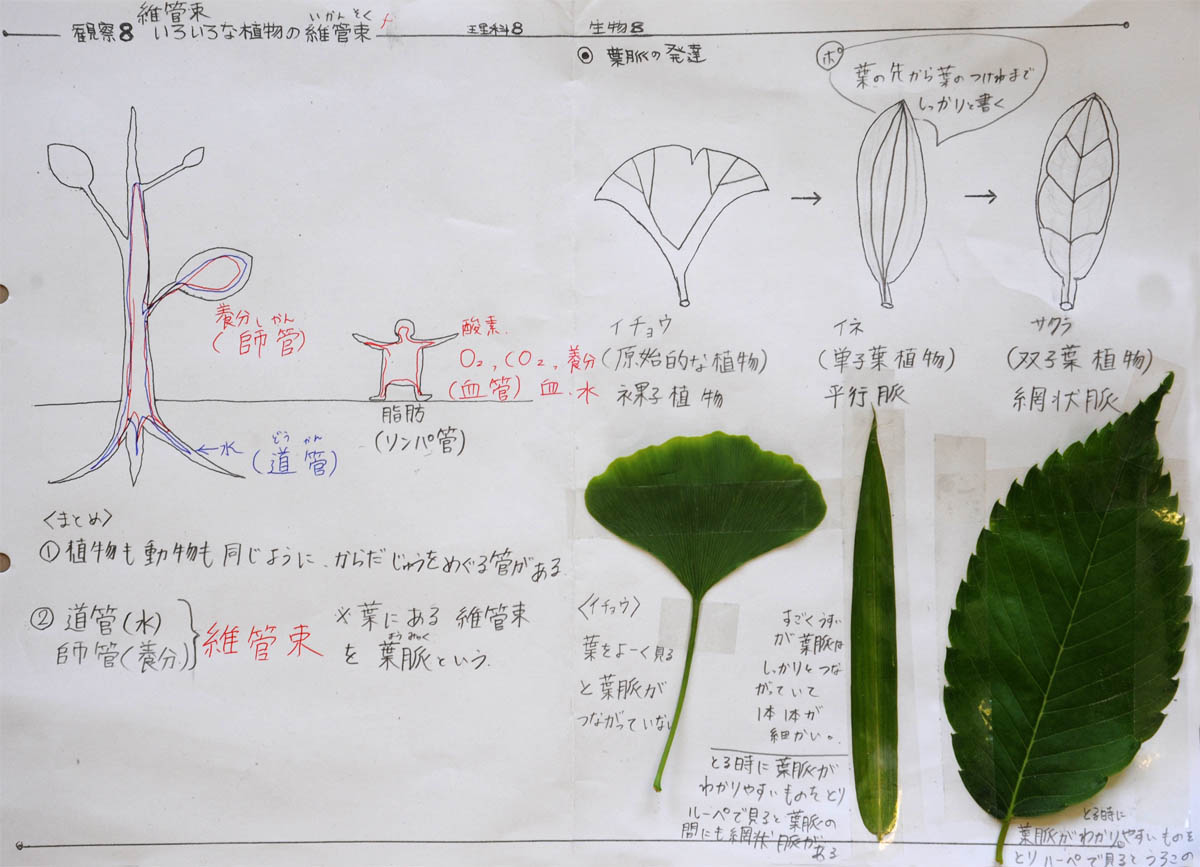 維管束
観察8 いろいろな植物の維管束
いかんそく
理科8
生物8
葉脈の発達
ポ
葉の先から葉のつけねまで
しっかりと書く
養分 しかん
(師管)
酸素
O₂, CO₂, 養分
(血管) 血、水
脂肪
(リンパ管)
←水
どう かん
(道管)
イチョウ
(原始的な植物)
裸子植物
イネ
(単子葉植物)
平行脈
サクラ
(双子葉植物)
網状脈
〈まとめ〉
①植物も動物も同じように、からだじゅうをめぐる管がある。
②道管(水)
師管(養分)
維管束
※葉にある維管束
ようみゃく
を葉脈という。
〈イチョウ〉
葉をよーく見る
と葉脈が
つながっていない
すごくうすい
が葉脈は
しっかりとつな
がっていて
1本1本が
細かい。
とる時に葉脈が
わかりやすいものをとり
ルーペで見ると葉脈の
間にも網状脈がある
とる時に
葉脈がわかりやすいものを
とりルーペで見ると